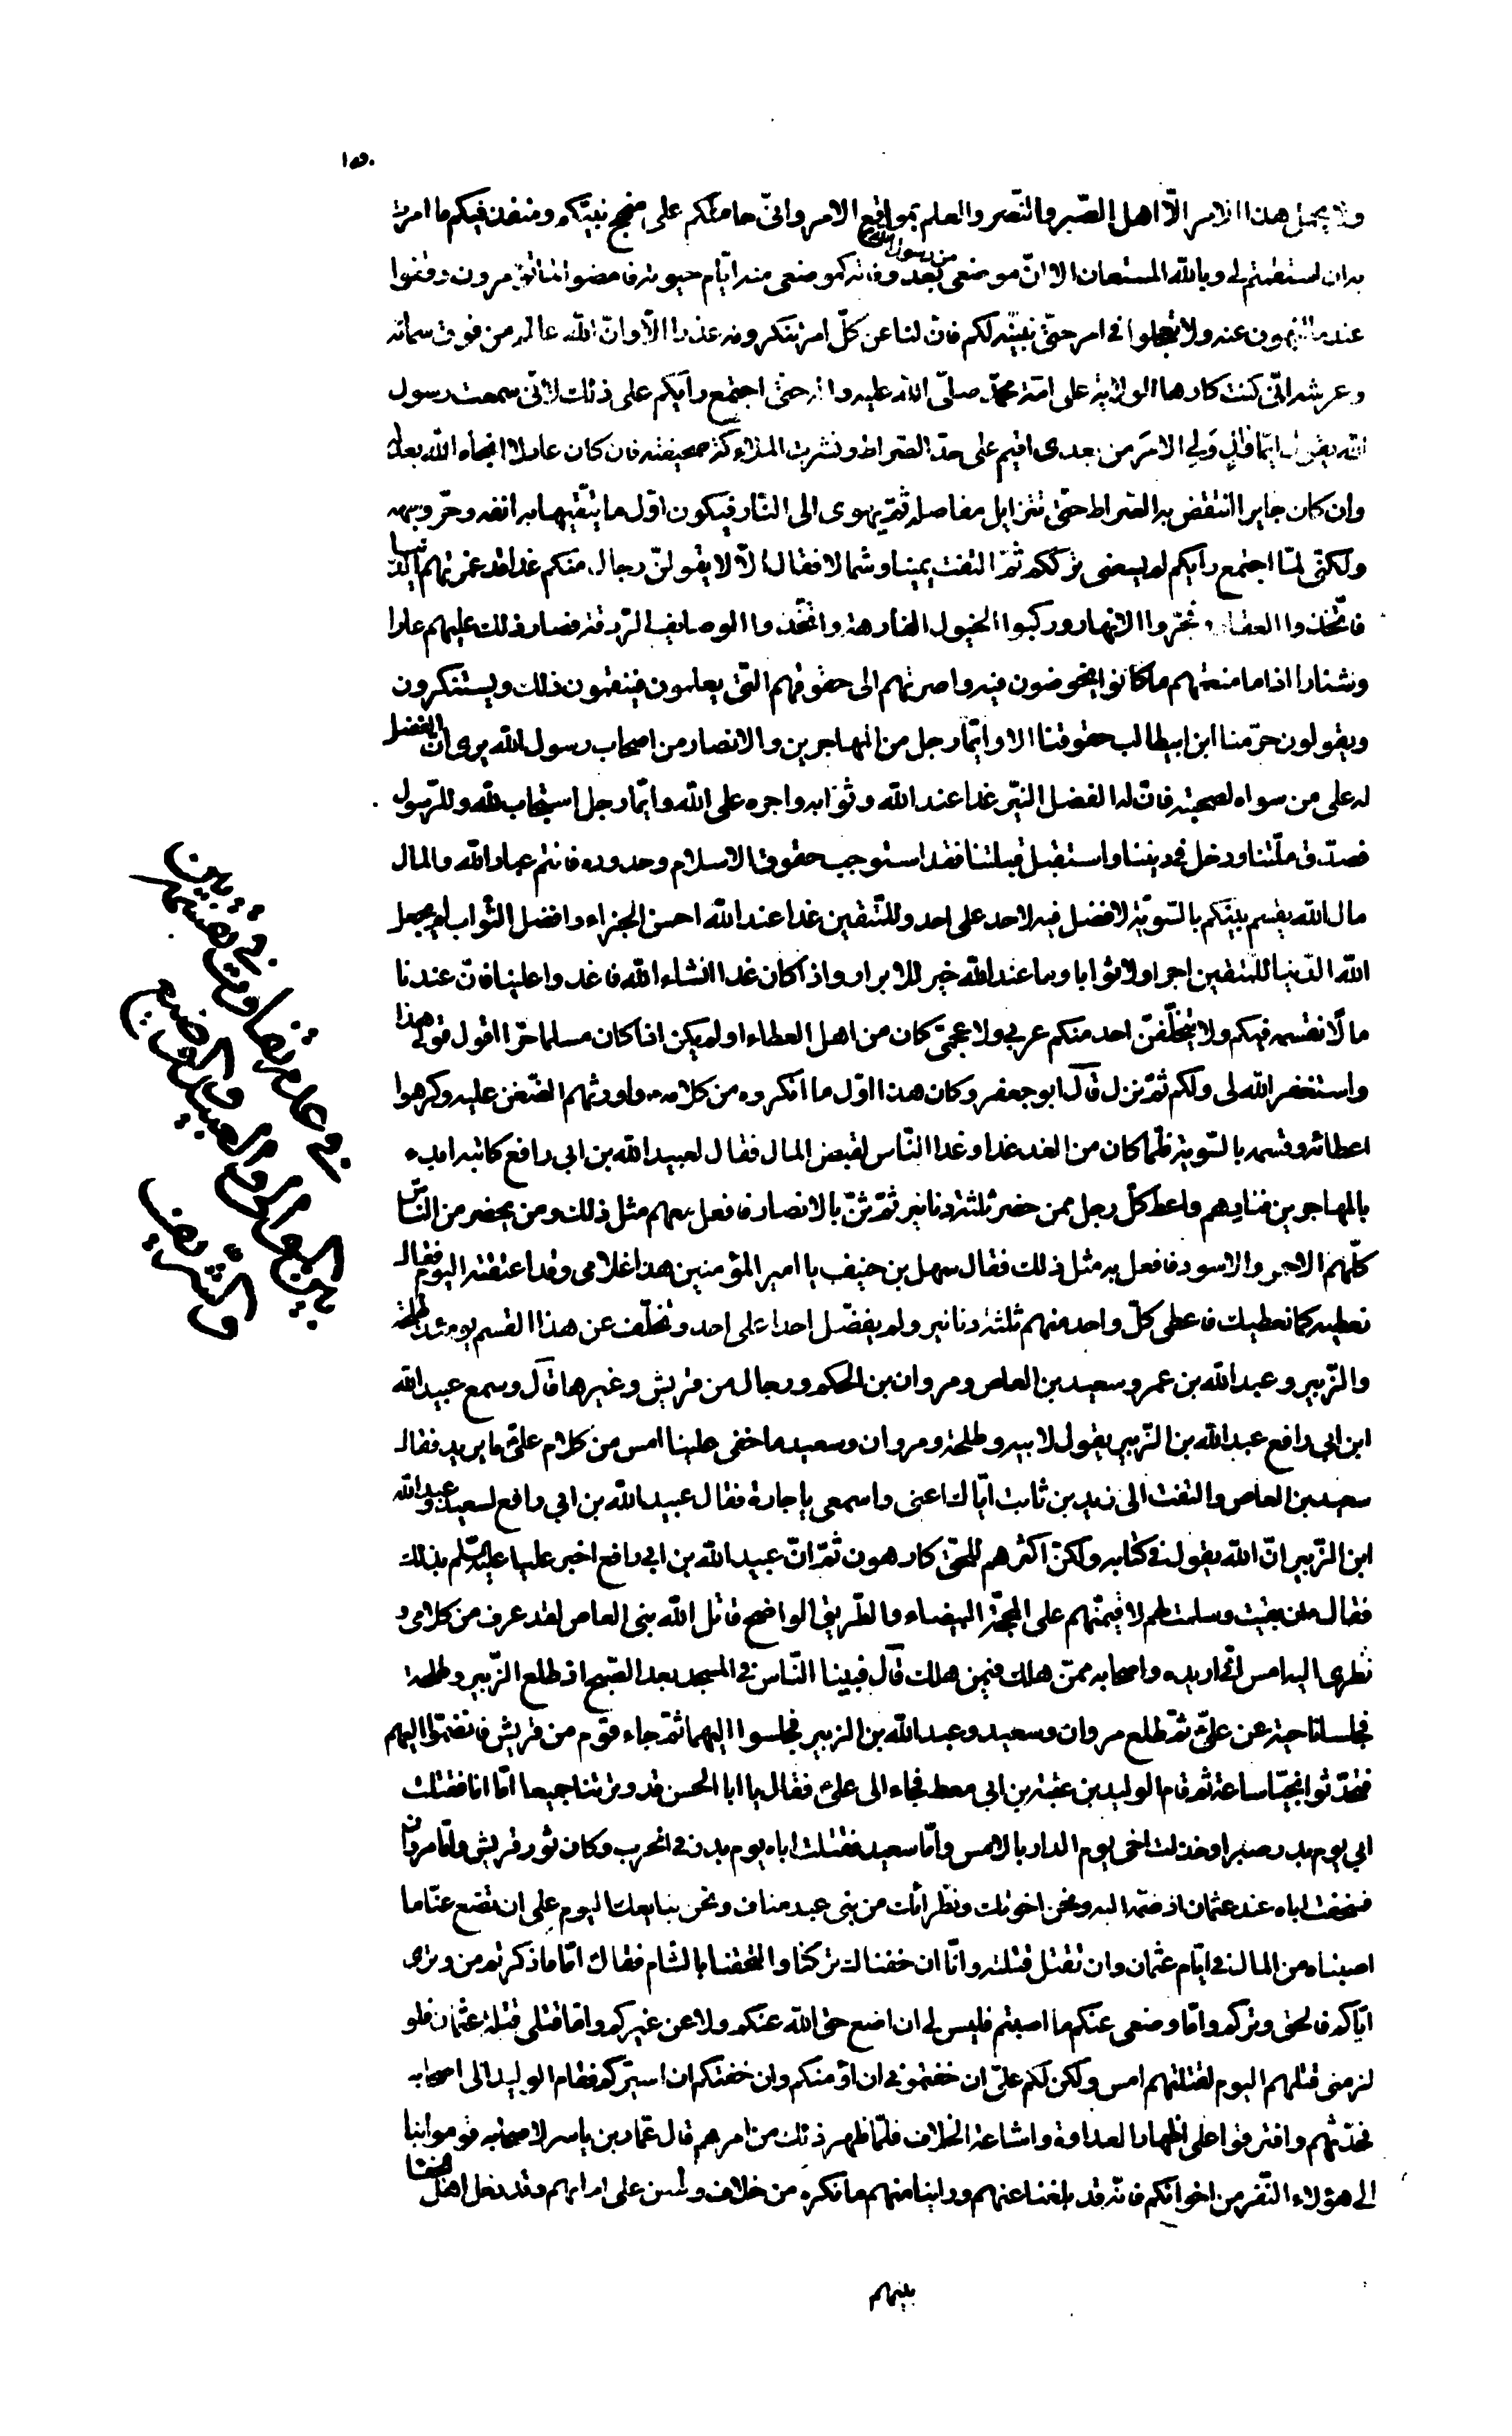 ولا يحمل هذا الامر الّا اهل الصّبر والنّصر والعلم بمواقع الامر وانّى حاملكم على منهج نبيّكم ومنفذ فيكم ما امرت
به ان استقمتم لى وبالله المستعان الا انّ موضعى من رسول الله بعد وفاته كموضعى منه ايّام حيوته فامضوا لما تؤمرون وقفوا
عند ما تنهون عنه ولا تعجلوا فى امر حتّى نبيّنه لكم فانّ لنا عن كلّ امر تنكرونه عذرا الّا وانّ الله عالم من فوق سمائه
وعرشه انّى كنت كارها الولاية على امّة محمّد صلّى الله عليه واله حتّى اجتمع رايكم على ذلك لانّى سمعت رسول
الله يقول ايّما وال ولى الامر من بعدى اقيم على حدّ الصّراط ونشرت الملائكة صحيفته فان كان عادلا انجاه الله بعدله
وان كان جايرا انتقض به الصّراط حتّى تتزايل مفاصله ثمّ يهوى الى النّار فيكون اوّل ما يتّقيها به انفه وحرّ وجهه
ولكنّى لمّا اجتمع رايكم لم يسعنى ترككم ثمّ التفت يمينا وشمالا فقال الّا لا يقولنّ رجال منكم غدا قد غمرتهم الدّنيا
فاتّخذوا العقار وفجّروا الانهار وركبوا الخيول الفارهة واتّخذوا الوصايف الرّوقة فصار ذلك عليهم عارا
وشنارا اذا ما منعتهم ما كانوا يخوضون فيه واصرتهم الى حقوقهم الّتى يعلمون فينقمون ذلك ويستنكرون
ويقولون حرّمنا ابن ابيطالب حقوقنا الا وايّما رجل من المهاجرين والانصار من اصحاب رسول الله يرى انّ الفضل
له على من سواه لصحبته فانّ له الفضل النيّر غدا عند الله وثوابه واجره على الله وايّما رجل استجاب لله وللرّسول
فصدّق ملّتنا ودخل فى ديننا واستقبل قبلتنا فقد استوجب حقوق الاسلام وحدوده فانتم عباد الله والمال
مال الله يقسم بينكم بالسّويّة لا فضل فيه لاحد على احد وللمتّقين غدا عند الله احسن الجزاء وافضل الثّواب لم يجعل
الله الدّنيا للمتّقين اجرا ولا ثوابا وما عند الله خير للابرار واذا كان غدا انشاء الله فاغدوا علينا فانّ عندنا
مالا نقسمه فيكم ولا يتخلّفنّ احد منكم عربى ولا عجمىّ كان من اهل العطاء او لم يكن اذا كان مسلما حرّا اقول قولى هذا
واستغفر الله لى ولكم ثمّ نزل قال ابو جعفر وكان هذا اوّل ما انكروه من كلامه واورثهم الضّغن عليه وكرهوا
اعطائه وقسمه بالسّوية فلمّا كان من الغد غدا وغدا النّاس لقبض المال فقال لعبيد الله بن ابى رافع كاتبه ابدء
بالمهاجرين فنادهم واعط كلّ رجل ممن حضر ثلثة دنانير ثمّ ثنّ بالانصار فافعل معهم مثل ذلك ومن يحضر من النّاس
كلّهم الاحمر والاسود فافعل به مثل ذلك فقال سهل بن حنيف يا امير المؤمنين هذا غلامى وقد اعتقته اليوم فقال
نعطيه كما نعطيك فاعطى كلّ واحد منهم ثلثة دنانير ولم يفضّل احدا على احد وتخلّف عن هذا القسم يومئذ طلحة
والزّبير وعبد الله بن عمر وسعيد بن العاص ومروان بن الحكم ورجال من قريش وغيرها قال وسمع عبيد الله
ابن ابى رافع عبد الله بن الزّبير يقول لابيه وطلحة ومروان وسعيد ما خفى علينا امس من كلام علىّ ما يريد فقال
سعيد بن العاص والتفت الى زيد بن ثابت ايّاك اعنى واسمعى يا جارة فقال عبيد الله بن ابى رافع لسعيد وعبد الله
ابن الزّبير انّ الله يقول فى كتابه ولكنّ اكثرهم للحقّ كارهون ثمّ انّ عبيد الله بن ابى رافع اخبر عليا عليه السّلم بذلك
فقال لئن بقيت وسلمت لهم لاقيمنّهم على المحجّة البيضاء والطّريق الواضح قاتل الله بنى العاص لقد عرف من كلامى و
نظرى اليه امس انّى اريده واصحابه ممّن هلك فيمن هلك قال فبينا النّاس فى المسجد بعد الصّبح اذ طلع الزّبير وطلحة
فجلسا ناحية عن علىّ ثمّ طلع مروان وسعيد وعبد الله بن الزبير فجلسوا اليهما ثمّ جاء قوم من قريش فانضمّوا اليهم
فتحدّثوا نجيّا ساعة ثم قام الوليد بن عقبة بن ابى معط فجاء الى علىّ فقال يا ابا الحسن قد وترتنا جميعا امّا انا فقتلت
ابى يوم بدر صبرا وخذلت اخى يوم الدار بالامس وامّا سعيد فقتلت اباه يوم بدر فى الحرب وكان ثور قريش وامّا مروان
فسخفت اباه عند عثمان اذ ضمّه اليه ونحن اخوتك ونظرائك من بنى عبد مناف ونحن نبايعك اليوم على ان تضع عنّا ما
اصبناه من المال فى ايّام عثمان وان تقتل قتلته وانّا ان خفناك تركنا والتحقنا بالشام فقال امّا ما ذكرتم من وترى
ايّاكم فالحقّ وتركم وامّا وضعى عنكم ما اصبتم فليس لى ان اضع حقّ الله عنكم ولا عن غيركم وامّا قتلى قتلة عثمان فلو
لزمنى قتلهم اليوم لقتلتهم امس ولكن لكم علىّ ان خفتمونى ان اؤمنكم وان خفتكم ان اسيّركم فقام الوليد الى اصحابه
فحدّثهم وافترقوا على اظهار العداوة واشاعة الخلاف فلمّا ظهر ذلك من امرهم قال عمّار بن ياسر لاصحابه قوموا بنا
الى هؤلاء النّفر من اخوانكم فانّه قد بلغنا عنهم وراينا منهم ما نكره من خلاف وطعن على امامهم وقد دخل اهل الجفا
بينهم
فى عدم تفاوت قسمته بين
بين العالم والعبد والوضيع
والشريف